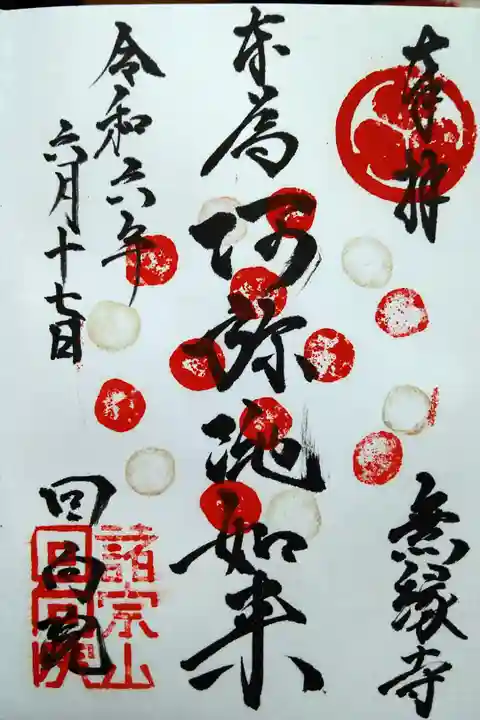 奉拝
無縁寺
奉為
阿弥陀如来
令和六年
六月十七日
回向院
諸宗山
回向院